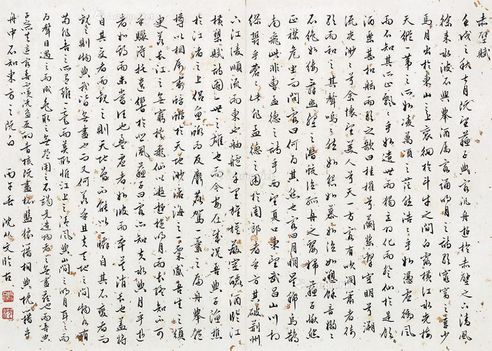 赤壁賦
壬戌之秋七月既望蘇子與客泛舟遊於赤壁之下清風
徐來水波不興舉酒屬客誦明月之詩歌窈窕之章少
焉月出於東山之上徘徊於斗牛之間白露橫江水光接
天縱一葦之所如凌萬頃之茫然浩浩乎如馮虛御風
而不知其所止飄飄乎如遺世獨立羽化而登仙於是飲
酒樂甚扣舷而歌之歌曰桂棹兮蘭槳擊空明兮溯
流光渺渺兮余懷望美人兮天一方客有吹洞簫者倚
歌而和之其聲嗚嗚然如怨如慕如泣如訴餘音嫋嫋
不絕如縷舞幽壑之潛蛟泣孤舟之嫠婦蘇子愀然
正襟危坐而問客曰何為其然也客曰月明星稀烏鵲
南飛此非曹孟德之詩乎西望夏口東望武昌山川相
繆鬱乎蒼蒼此非孟德之困於周郎者乎方其破荊州
下江陵順流而東也舳艫千里旌旗蔽空釃酒臨江
橫槊賦詩固一世之雄也而今安在哉況吾與子漁樵
於江渚之上侶魚蝦而友麋鹿駕一葉之扁舟舉匏
樽以相屬寄蜉蝣於天地渺滄海之一粟哀吾生之須
臾羨長江之無窮挾飛仙以遨遊抱明月而長終知不可
乎驟得託遺響於悲風蘇子曰客亦知夫水與月乎逝
者如斯而未嘗往也盈虛者如彼而卒莫消長也蓋將
自其變者而觀之則天地曾不能以一瞬自其不變者而
觀之則物與我皆無盡也而又何羨乎且夫天地之間物各有主
苟非吾之所有雖一毫而莫取惟江上之清風與山間之明月耳得之而
為聲目遇之而成色取之無禁用之不竭是造物者之無盡藏也而吾與
子之所共適客喜而笑洗盞更酌肴核既盡杯盤狼藉相與枕藉乎
舟中不知東方之既白 丙子春 沈